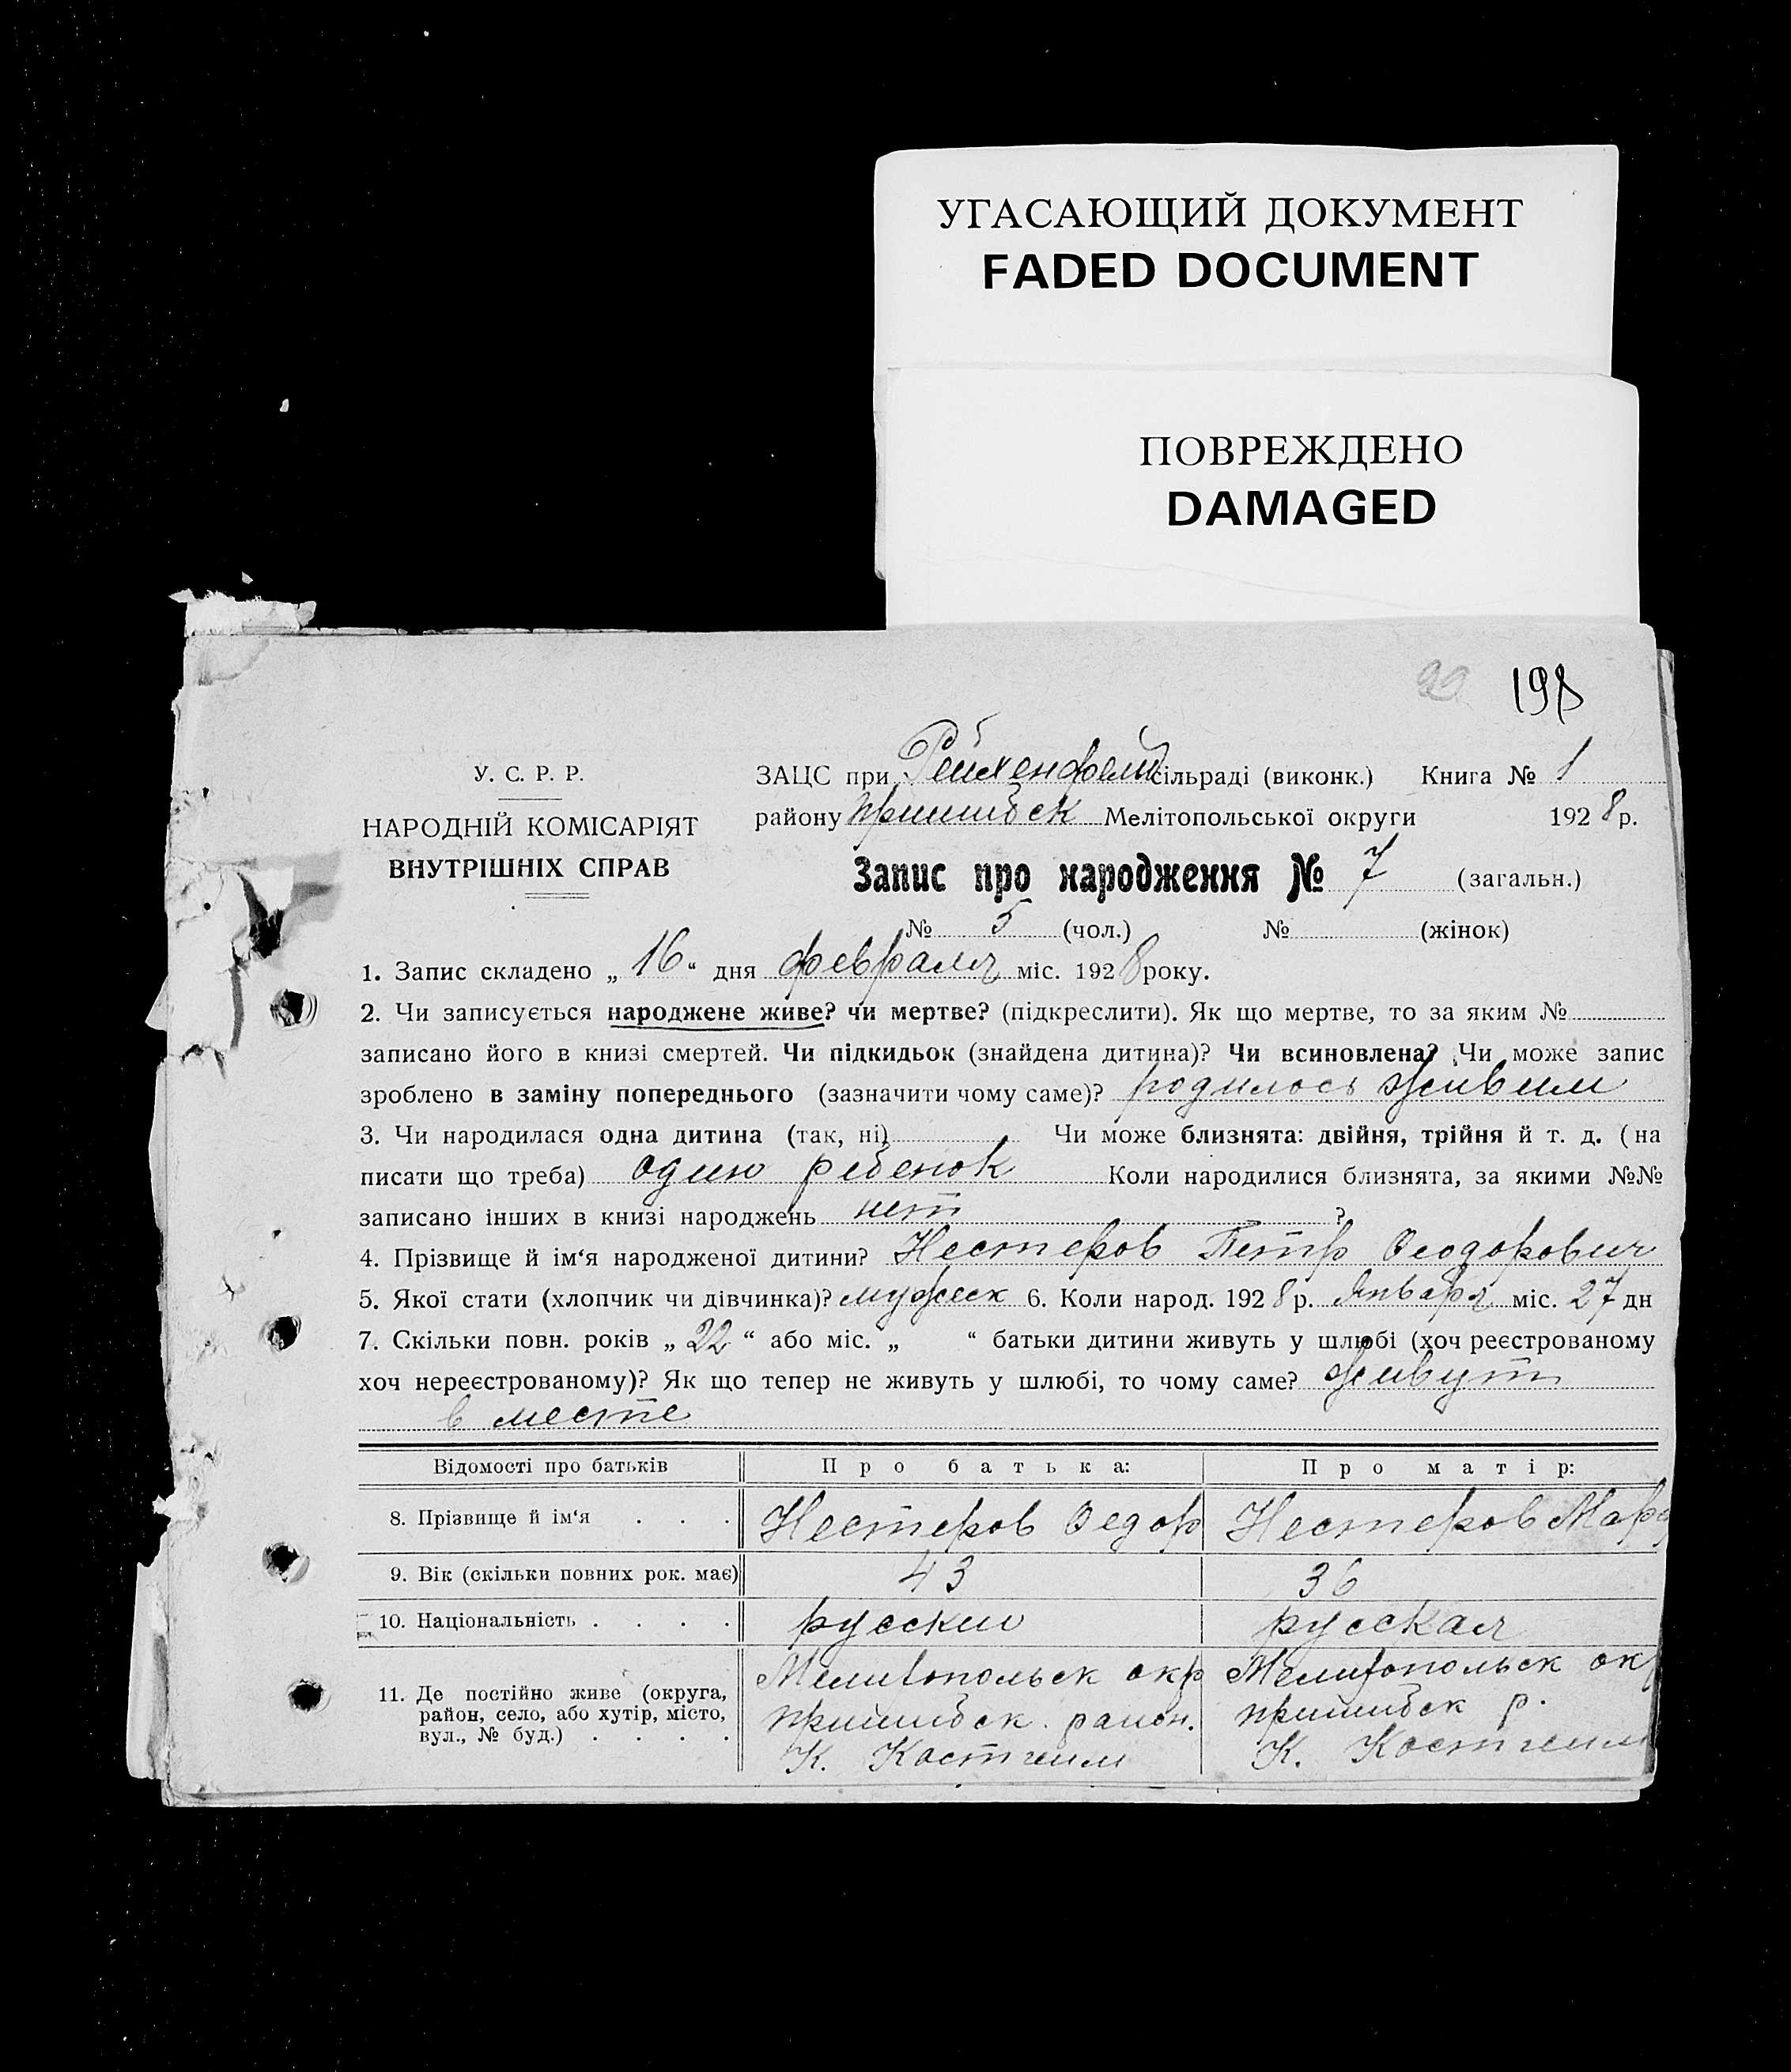 УГАСАЮЩИЙ ДОКУМЕНТ
FADED DOCUMENT
ПОВРЕЖДЕНО
DAMAGED
198
У. С. Р. Р.
НАРОДНІЙ КОМІСАРІЯТ
ВНУТРІШНІХ СПРАВ
ЗАЦС при Рейхенфельд сільраді (виконк.) Книга № 1
району Пришибск Мелітопольської округи 1928 р.
Запис про народження № 7 (загальн.)
№ 5 (чол.) № (жінок)
1. Запис складено „ 16 “ дня февраля міс. 1928 року.
2. Чи записується народжене живе? чи мертве? (підкреслити). Як що мертве, то за яким №
записано його в книзі смертей. Чи підкидьок (знайдена дитина)? Чи всиновлена? Чи може запис
зроблено в заміну попереднього (зазначити чому саме)? родилось живим
3. Чи народилася одна дитина (так, ні) Чи може близнята: двійня, трійня й т. д. (на
писати що треба) один ребенок Коли народилися близнята, за якими №№
записано інших в книзі народжень нет ?
4. Прізвище й ім‘я народженої дитини? Нестеров Петр Феодорович
5. Якої стати (хлопчик чи дівчинка)? мужеск 6. Коли народ. 1928 р. Января міс. 27 дн
7. Скільки повн. років „ 22 “ або міс. „ “ батьки дитини живуть у шлюбі (хоч реєстрованому
хоч нереєстрованому)? Як що тепер не живуть у шлюбі, то чому саме? живут
в месте
Відомості про батьків Про батька: Про матір:
8. Прізвище й ім‘я . . . Нестеров Федор Нестеров Мар
9. Вік (скільки повних рок. має) 43 36
10. Національність . . . . русский русская
11. Де постійно живе (округа,
район, село, або хутір, місто,
вул., № буд.) . . . .
Мелитопольск окр
Пришибск. район.
К. Костгейм
Мелитопольск ок
Пришибск р.
К. Костгейм